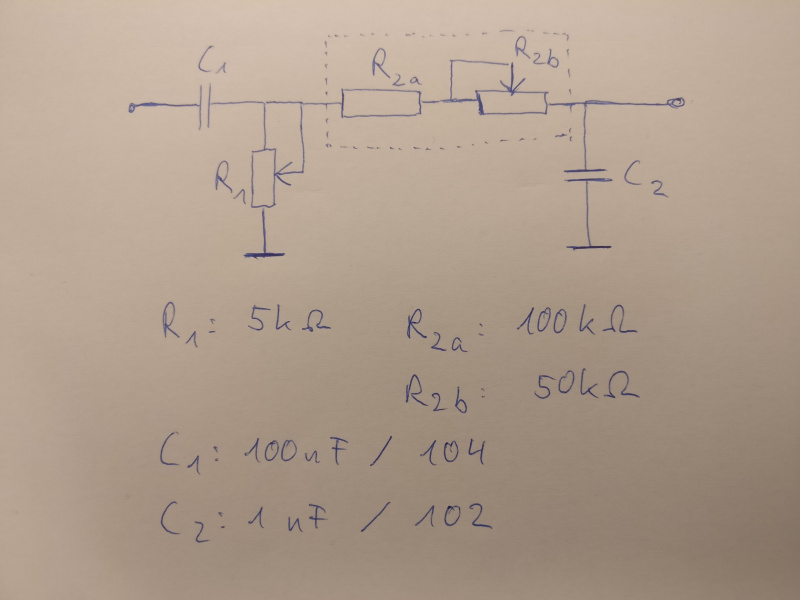 C1
R2a
R2b
R1
C2
R1: 5kΩ R2a: 100kΩ
R2b: 50kΩ
C1: 100nF / 104
C2: 1nF / 102